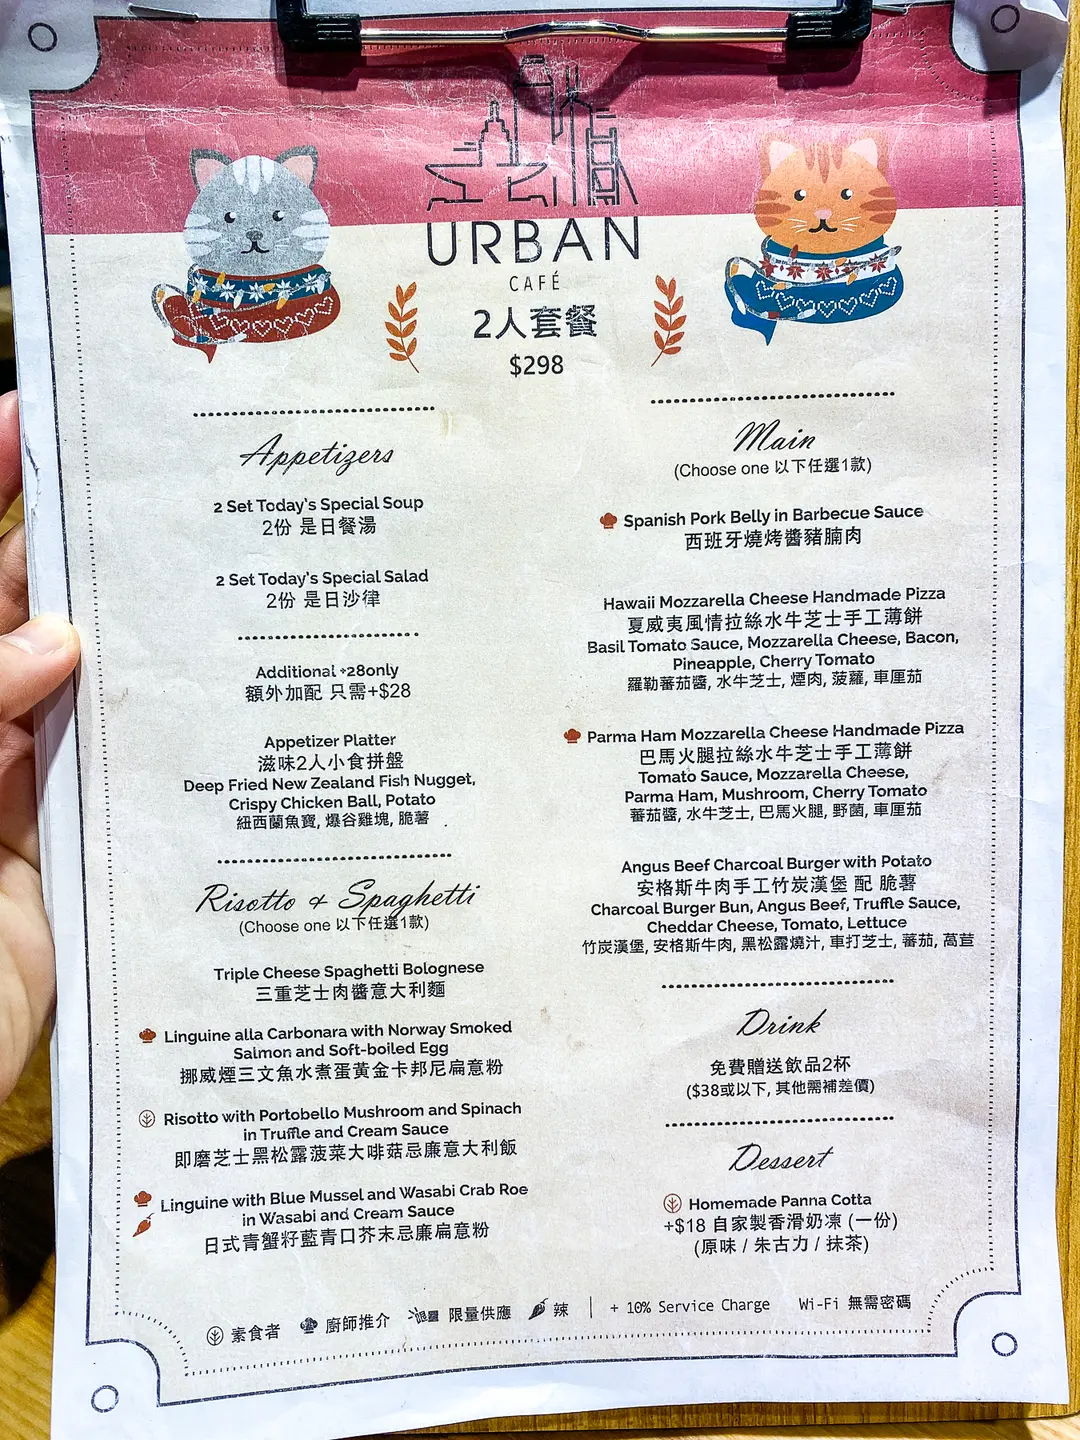 URBAN
CAFÉ
2人套餐
$298
Appetizers
2 Set Today's Special Soup
2份 是日餐湯
2 Set Today's Special Salad
2份 是日沙律
Additional +28only
額外加配 只需+$28
Appetizer Platter
滋味2人小食拼盤
Deep Fried New Zealand Fish Nugget,
Crispy Chicken Ball, Potato
紐西蘭魚寶, 爆谷雞塊, 脆薯
Risotto & Spaghetti
(Choose one 以下任選1款)
Triple Cheese Spaghetti Bolognese
三重芝士肉醬意大利麵
Linguine alla Carbonara with Norway Smoked
Salmon and Soft-boiled Egg
挪威煙三文魚水煮蛋黃金卡邦尼扁意粉
Risotto with Portobello Mushroom and Spinach
in Truffle and Cream Sauce
即磨芝士黑松露菠菜大啡菇忌廉意大利飯
Linguine with Blue Mussel and Wasabi Crab Roe
in Wasabi and Cream Sauce
日式青蟹籽藍青口芥末忌廉扁意粉
Main
(Choose one 以下任選1款)
Spanish Pork Belly in Barbecue Sauce
西班牙燒烤醬豬腩肉
Hawaii Mozzarella Cheese Handmade Pizza
夏威夷風情拉絲水牛芝士手工薄餅
Basil Tomato Sauce, Mozzarella Cheese, Bacon,
Pineapple, Cherry Tomato
羅勒蕃茄醬, 水牛芝士, 煙肉, 菠蘿, 車厘茄
Parma Ham Mozzarella Cheese Handmade Pizza
巴馬火腿拉絲水牛芝士手工薄餅
Tomato Sauce, Mozzarella Cheese,
Parma Ham, Mushroom, Cherry Tomato
蕃茄醬, 水牛芝士, 巴馬火腿, 野菌, 車厘茄
Angus Beef Charcoal Burger with Potato
安格斯牛肉手工竹炭漢堡 配 脆薯
Charcoal Burger Bun, Angus Beef, Truffle Sauce,
Cheddar Cheese, Tomato, Lettuce
竹炭漢堡, 安格斯牛肉, 黑松露燒汁, 車打芝士, 蕃茄, 萵苣
Drink
免費贈送飲品2杯
($38或以下, 其他需補差價)
Dessert
Homemade Panna Cotta
+$18 自家製香滑奶凍 (一份)
(原味 / 朱古力 / 抹茶)
素食者 廚師推介 限量供應 辣 | + 10% Service Charge Wi-Fi 無需密碼